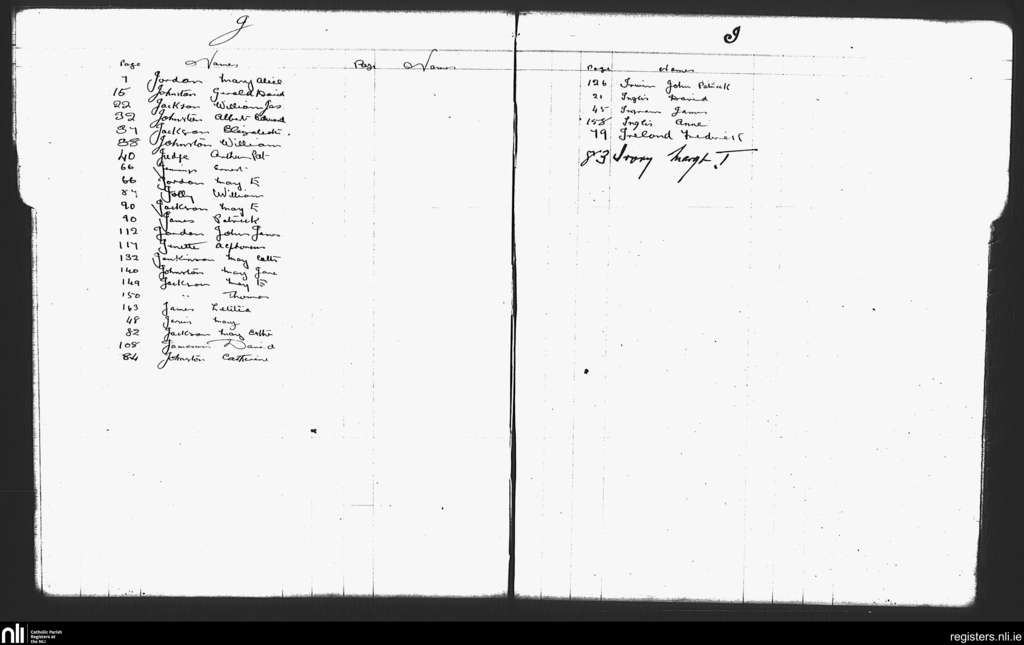 J
Page Names Page Names
7 Jordan Mary Alice
15 Johnston Gerald David
22 Jackson William Jas
32 Johnston Albert Edward
37 Jackson Elizabeth.
38 Johnston William
40 Judge Arthur Pat
66 Jennings Ernest
66 Jordan Mary E
87 Jolly William
90 Jackson Mary E
90 James Patrick
112 Jordan John James
117 Jenette Alphonsus
132 Jenkinson Mary Cath
140 Johnston Mary Jane
149 Jackson Mary E
150 " Thomas
163 James Letitia
48 Jervis Mary
82 Jackson Mary Cath
108 Jameson David
84 Johnston Catherine
I
Page Names
126 Irwin John Patrick
21 Inglis David
45 Ingram James
158 Inglis Anne
79 Ireland Frederick
83 Ivory Margt. T
nli Catholic Parish
Registers at
the NLI
registers.nli.ie